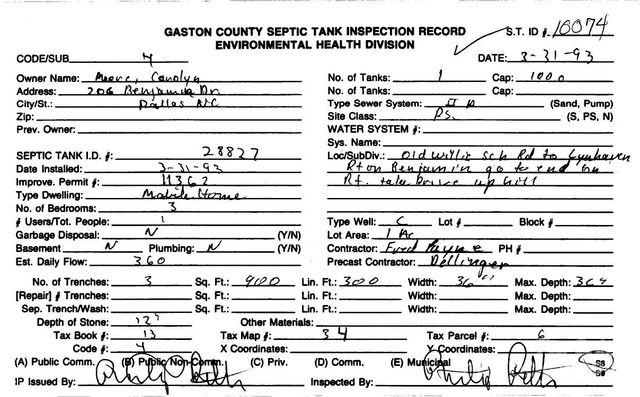 GASTON COUNTY SEPTIC TANK INSPECTION RECORD S.T. ID #. 10074
ENVIRONMENTAL HEALTH DIVISION
CODE/SUB 4 DATE: 3-31-93
Owner Name: Moore, Carolyn No. of Tanks: 1 Cap: 1000
Address: 206 Benjamin Dr No. of Tanks: Cap:
City/St.: Dallas NC Type Sewer System: (Sand, Pump)
Zip: Site Class: PS. (S, PS, N)
Prev. Owner: WATER SYSTEM #:
Sys. Name:
SEPTIC TANK I.D. #: 28827 Loc/SubDiv.: Old Willis Sch Rd to Lynhaven
Date Installed: 3-31-93 Rt on Benjamin go to end on
Improve. Permit #: 11362 Rt. take Drive up hill
Type Dwelling: Mobile Home
No. of Bedrooms: 3
# Users/Tot. People: 1 Type Well: C Lot # Block #
Garbage Disposal: N (Y/N) Lot Area: 1 Ac
Basement N Plumbing: N (Y/N) Contractor: Fred Payne PH #
Est. Daily Flow: 360 Precast Contractor: Dellinger
No. of Trenches: 3 Sq. Ft.: 900 Lin. Ft.: 300 Width: 36" Max. Depth:
[Repair] # Trenches Sq. Ft.: Lin. Ft.: Width: Max. Depth:
Sep. Trench/Wash: Sq. Ft.: Lin. Ft.: Width: Max. Depth:
Depth of Stone: 12" Other Materials:
Tax Book #: 13 Tax Map #: 34 Tax Parcel #: 6
Code #: 4 X Coordinates: Y-Coordinates:
(A) Public Comm. (B) Public Non-Comm. (C) Priv. (D) Comm. (E) Municipal
IP Issued By: Inspected By: